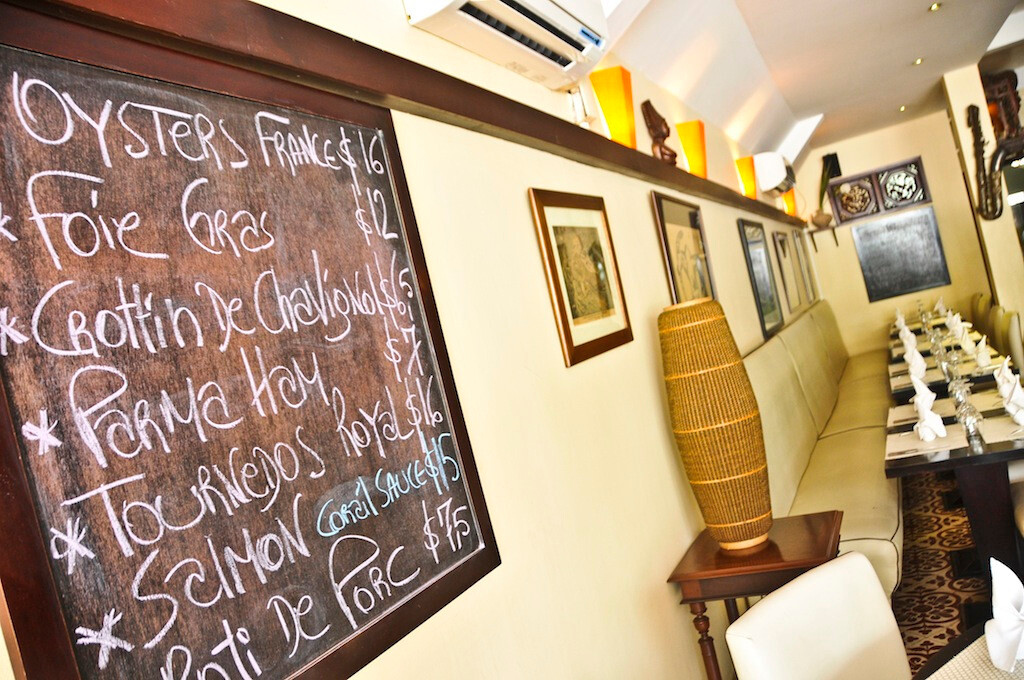 OYSTERS FRANCE $16
* Foie Gras $12
* CROTTIN De Chavignol $6.5
* PARMA HAM $7
* TOURNEDOS ROYAL $16
SALMON Corail SAUCE $15
* Roti De PORC $7,5